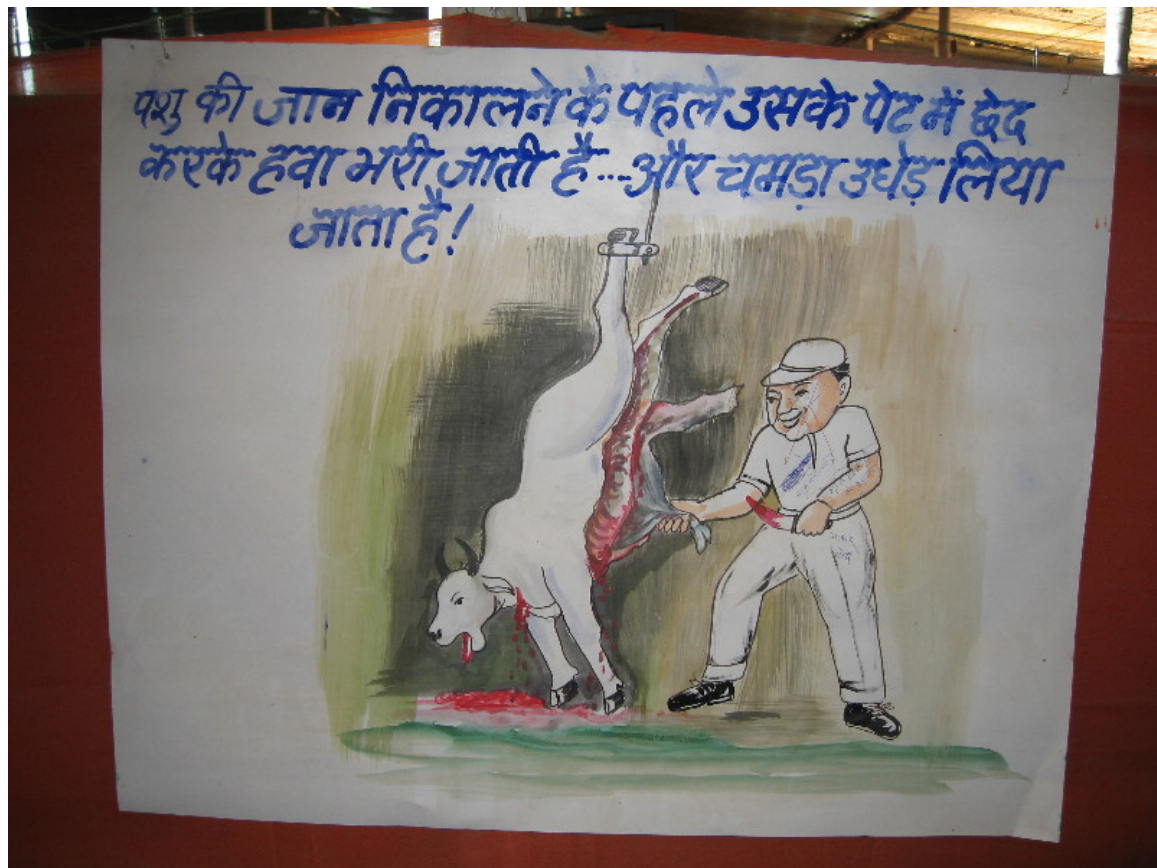 पशु की जान निकालने के पहले उसके पेट में छेद
करके हवा भरी जाती है...और चमड़ा उधेड़ लिया
जाता है!